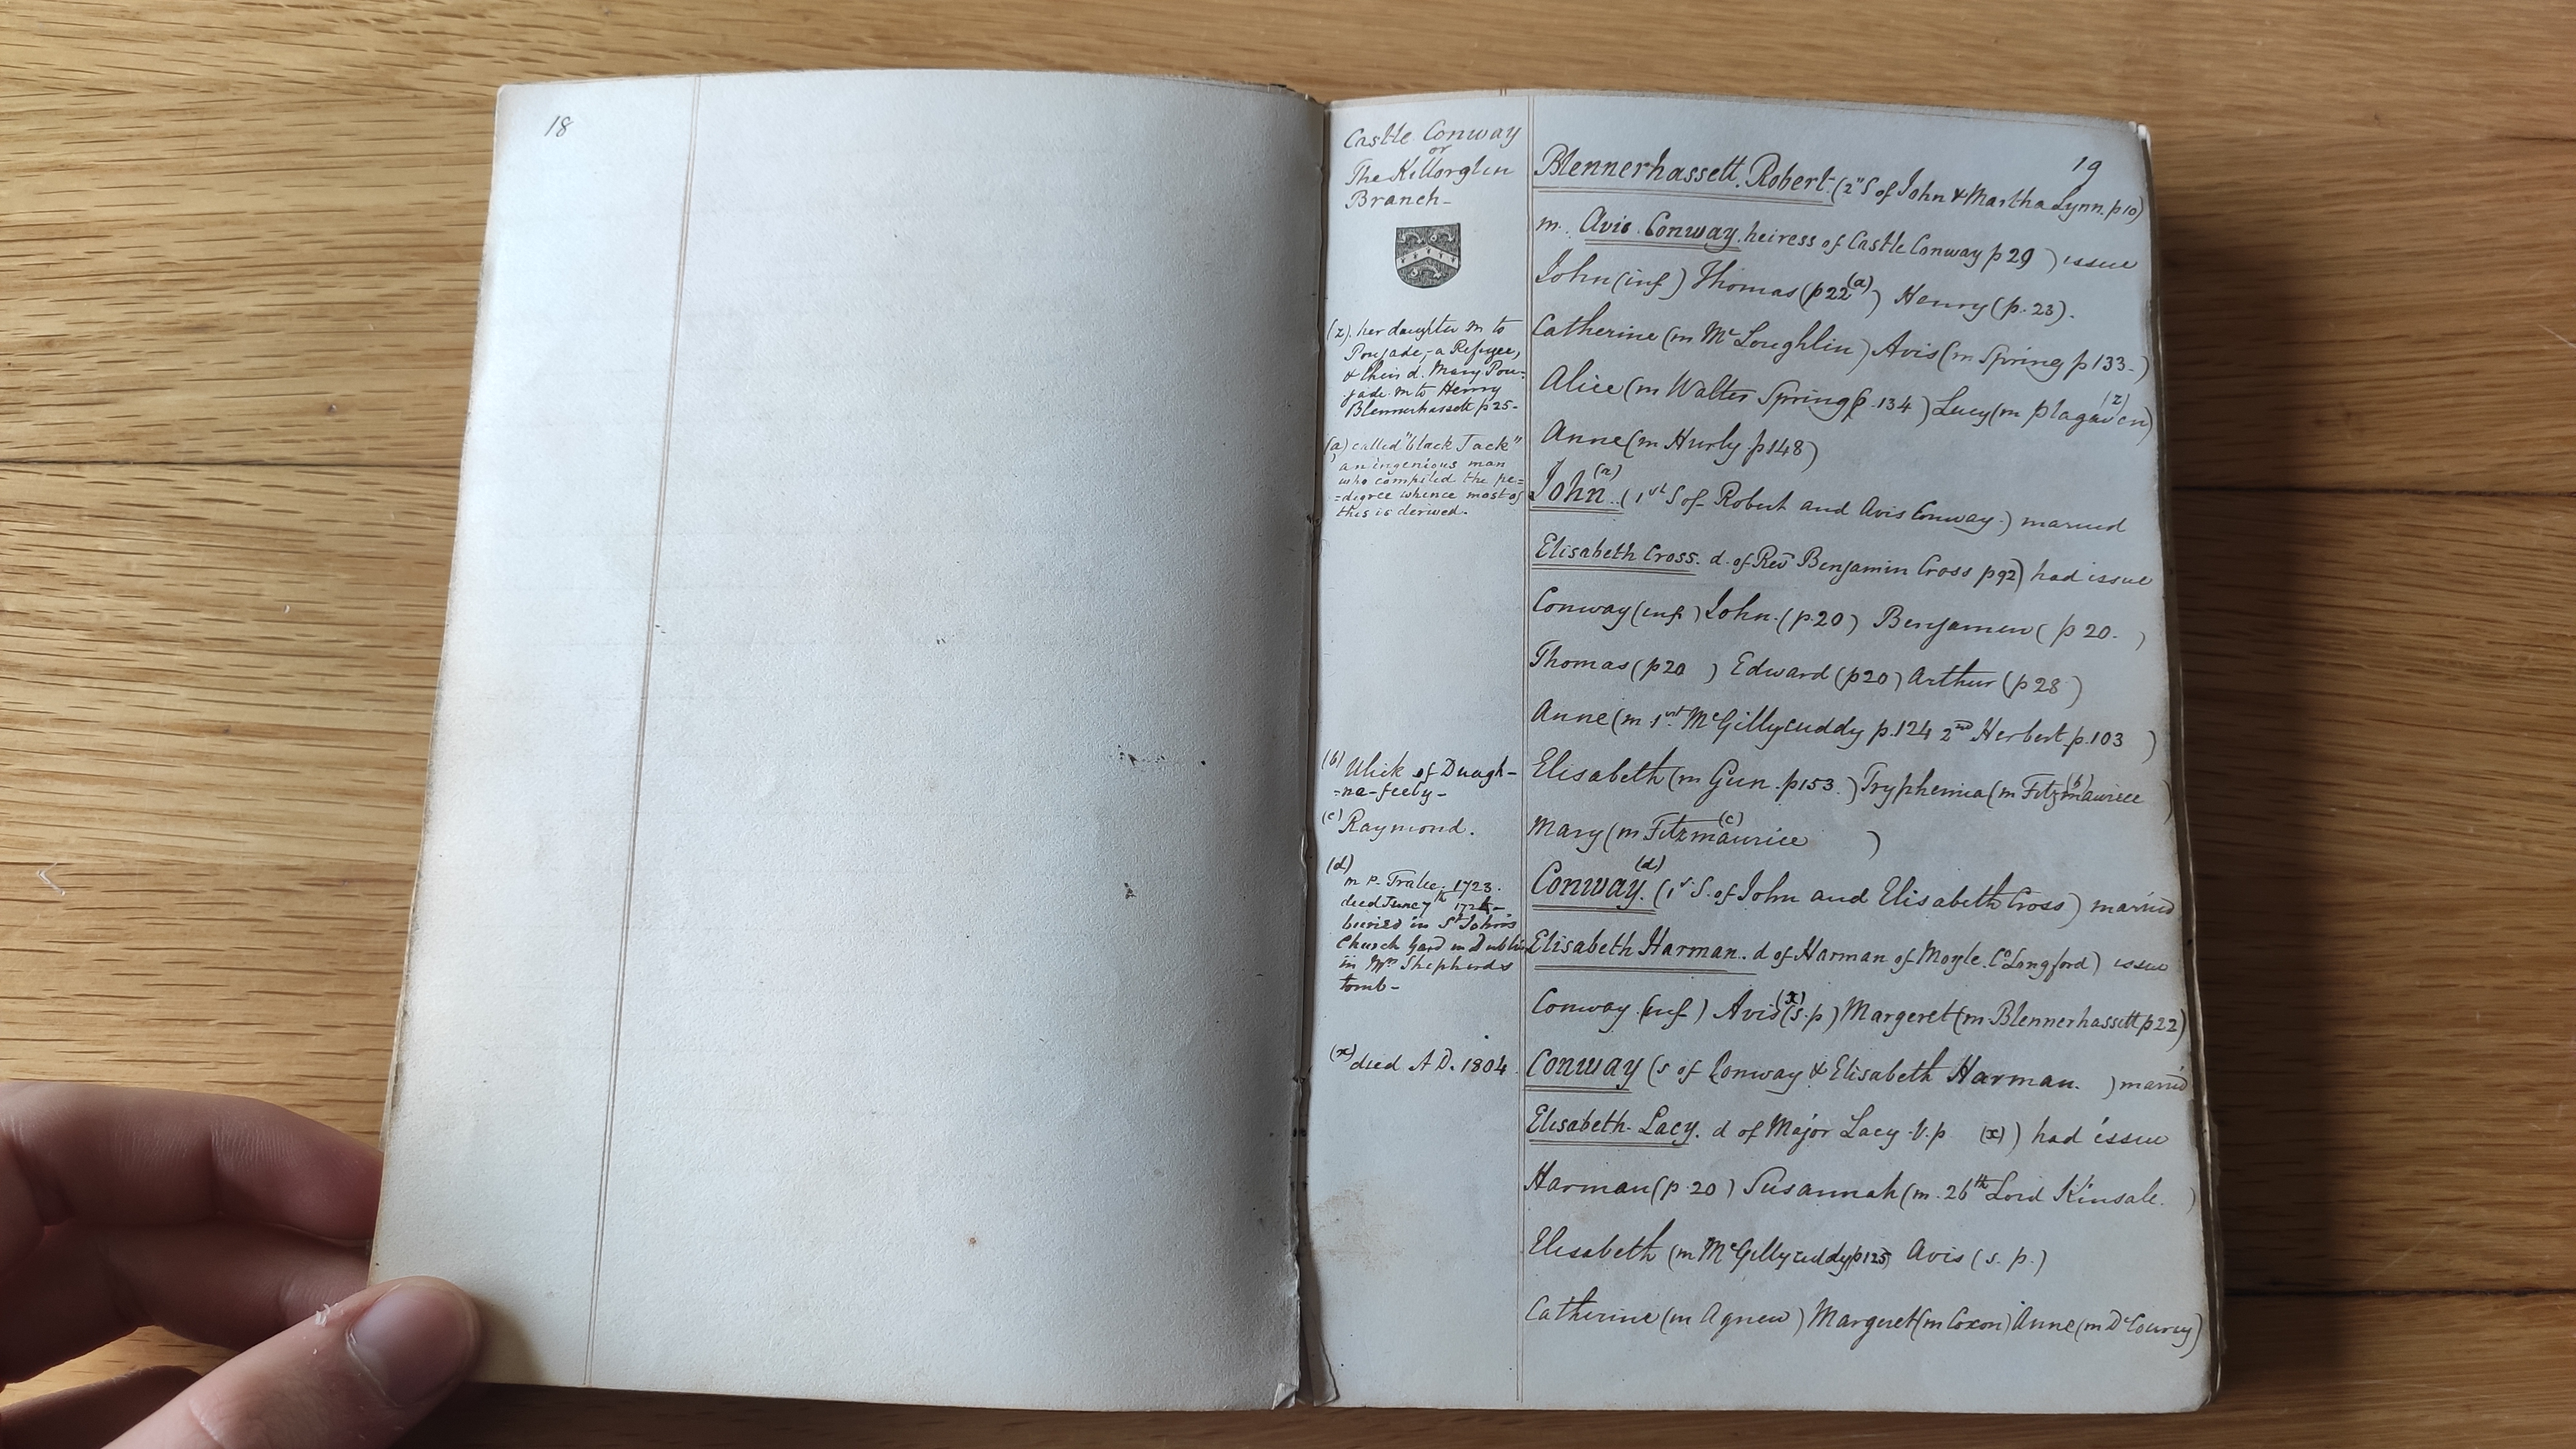 18
Castle Conway
or
The Killorglin
Branch-
(z). her daughter m to
Poujade,-a Refugee,
& their d. Mary Pou-
jade m to Henry
Blennerhassett p 25-
(a) called "black Jack"
an ingenious man
who compiled the pe=
=digree whence most of
this is derived.
(b) Ulick of Duagh-
=na-feely-
(c) Raymond.
(d)
m P. Tralee. 1723.
died June 7th
buried in St John's
Church Yard in Dublin
in Mrs Shepherds
tomb-
(x) died A D. 1804.
19
Blennerhassett. Robert. (2" S of John & Martha Lynn. p 10)
m. Avis. Conway. heiress of Castle Conway p 29 ) issue
John (inf) Thomas (p 22 (a)) Henry (p. 23).
Catherine (m McLoughlin) Avis (m Spring p 133-)
Alice (m Walter Spring p. 134) Lucy (m (z)
Anne (m Hurly p 148)
John (a) (1st S of Robert and Avis Conway.) married
Elisabeth Cross. d. of Revd Benjamin Cross p 92) had issue
Conway (inf) John. (p. 20) Benjamin ( p 20. )
Thomas (p 20 ) Edward (p 20) Arthur (p 28 )
Anne (m. 1st McGillycuddy p. 124 2nd Herbert p. 103 )
Elisabeth (m Gun. p 153.) Tryphenia (m Fitzmaurice (b) )
Mary (m Fitzmaurice (c) )
Conway. (d) (1st S. of John and Elisabeth Cross) married
Elisabeth Harman. d of Harman of Moyle. Co Longford) issue
Conway (inf) Avis (x) (s. p) Margeret (m. Blennerhassett p 22)
Conway (s of Conway & Elisabeth Harman. ) married
Elisabeth Lacy. d of Major Lacy V. p (x) ) had issue
Harman (p. 20) Susannah (m. 26th Lord Kinsale. )
Elisabeth (m McGillycuddy p 125) Avis (s. p.)
Catherine (m Agnew) Margeret (m Coxon) Anne (m DeCourcy)